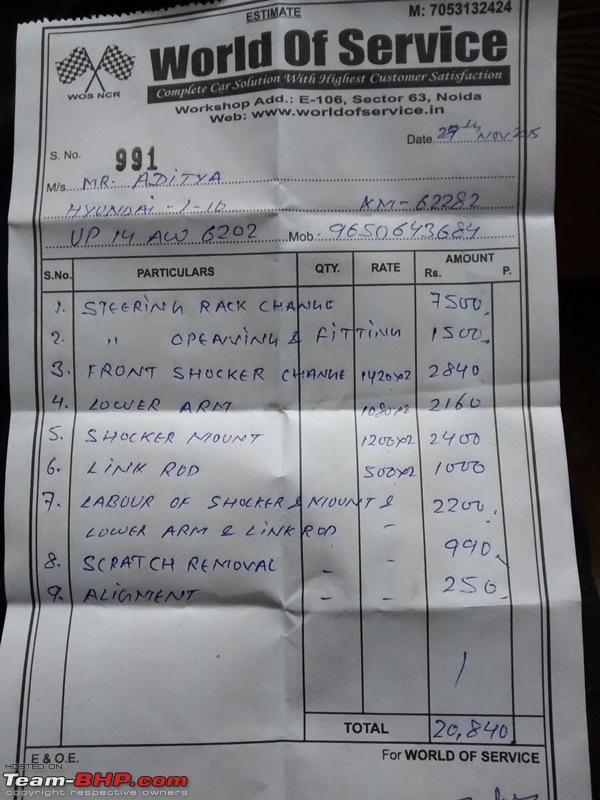 ESTIMATE M: 7053132424
WOS NCR World Of Service
Complete Car Solution With Highest Customer Satisfaction
Workshop Add.: E-106, Sector 63, Noida
Web: www.worldofservice.in
Date 29th NOV 2015
S. No. 991
M/s MR. ADITYA
HYUNDAI - I - 10 KM - 62282
UP 14 AW 6202 Mob.: 9650643684
S.No. PARTICULARS QTY. RATE AMOUNT Rs. P.
1. STEERING RACK CHANGE 7500
2. " OPEANING & FITTING 1500
3. FRONT SHOCKER CHANGE 1420x2 2840
4. LOWER ARM 1080x2 2160
5. SHOCKER MOUNT 1200x2 2400
6. LINK ROD 500x2 1000
7. LABOUR OF SHOCKER & MOUNT & 2200
LOWER ARM & LINK ROD -
8. SCRATCH REMOVAL - - 990
9. ALIGMENT - - 250
TOTAL 20,840
E & O.E. For WORLD OF SERVICE
HOSTED ON :
Team-BHP.com
copyright respective owners